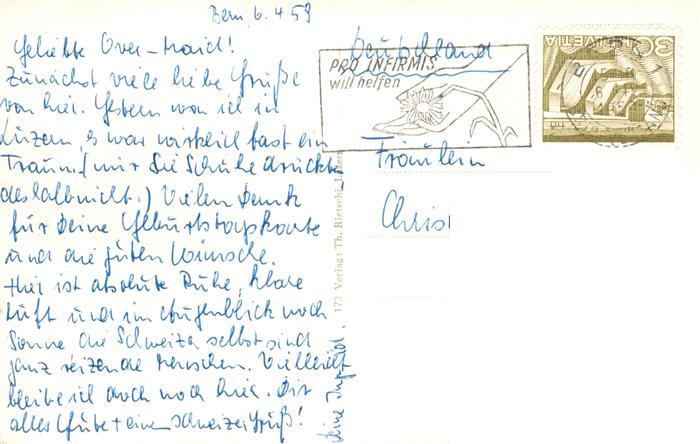 Bern, 6.4.53
Geliebte Over-maid!
Zunächst viele liebe Grüße
von hier. Gestern war ich in
Luzern, es war wirklich fast ein
Traum! (nur die Schuhe drückten
deshalb nicht.) Vielen Dank
für Deine Geburtstagskarte
und die guten Wünsche.
Hier ist absolute Ruhe, klare
Luft und im Augenblick noch
Sonne die Schweizer selbst sind
ganz reizende Menschen. Vielleicht
bleibe ich doch noch hier. Dir
alles Gute + einen Schweizer Gruß!
Deine
173 Verlag: Th. Rietschi, Luzern
PRO INFIRMIS
will helfen
Deutschland
HELVETIA
30
Fräulein
Christ